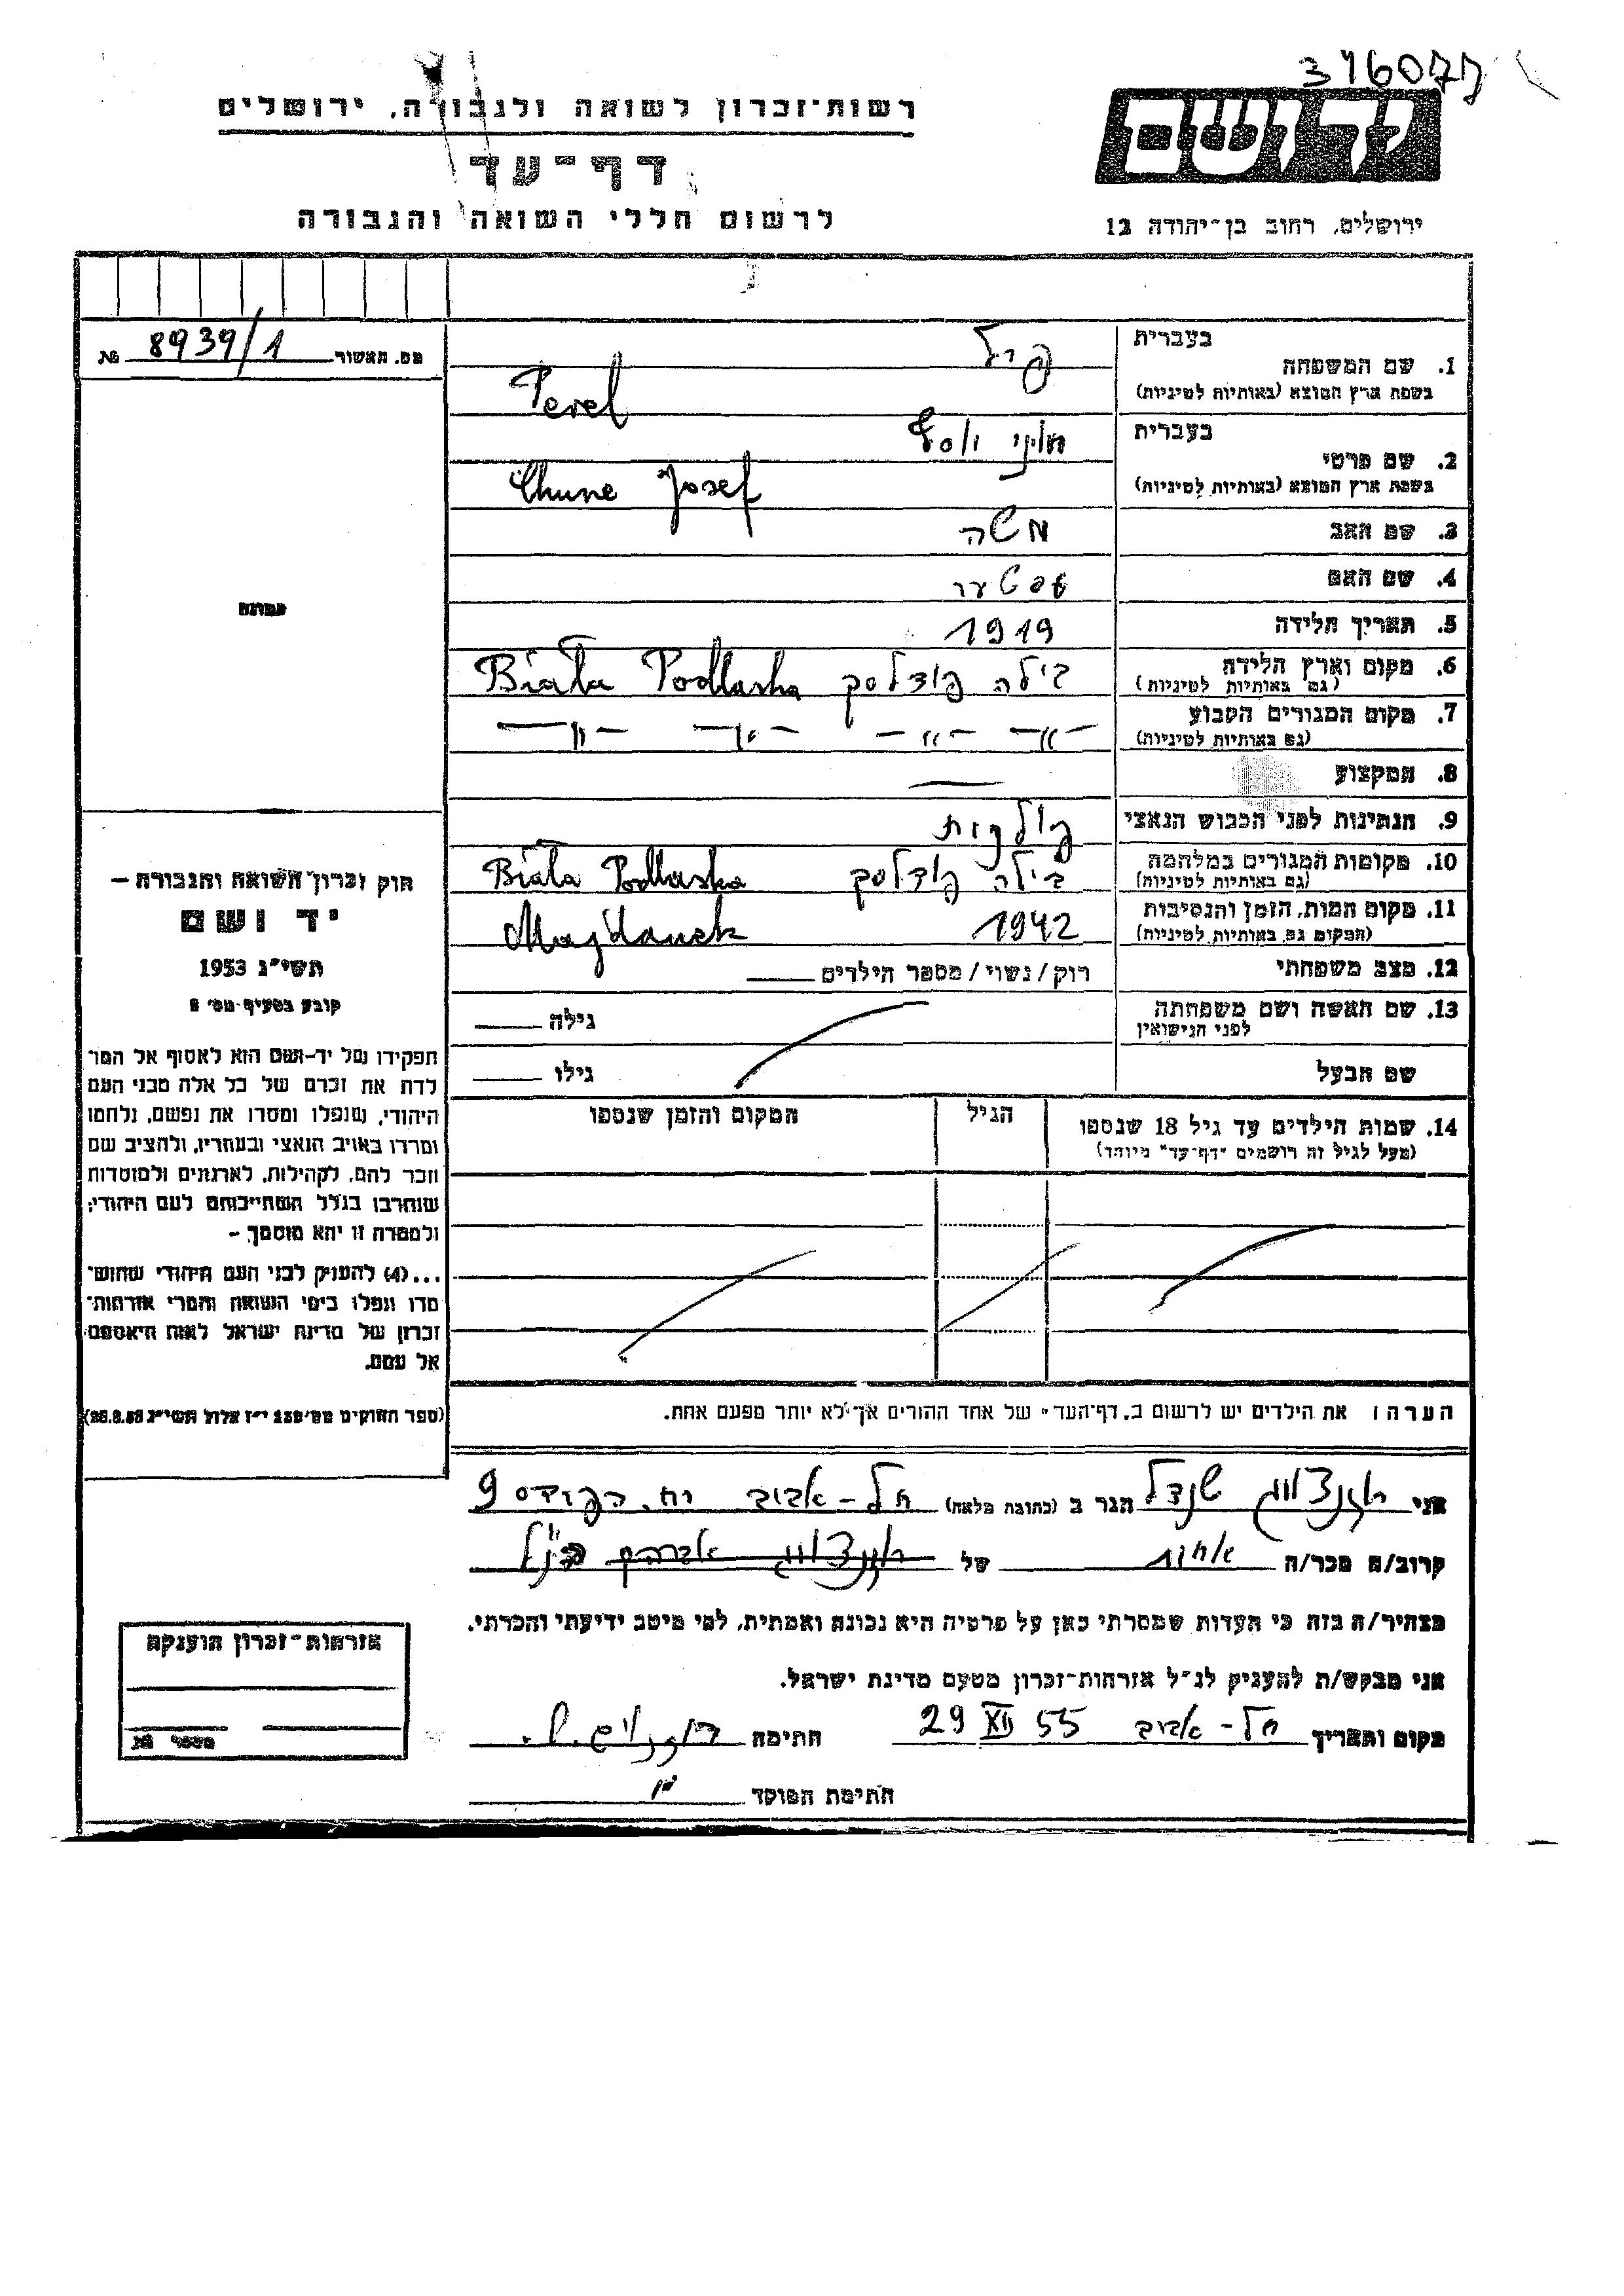 346077
רשות־זכרון לשואה ולגבורה, ירושלים
יד ושם
דף־עד
לרשום חללי השואה והגבורה
ירושלים, רחוב בן־יהודה 12
מס. האשור 8939/1 №
בעברית פרל
1. שם המשפחה
בשפת ארץ המוצא (באותיות לטיניות) Perel
בעברית חוני יוסף
2. שם פרטי
בשפת ארץ המוצא (באותיות לטיניות) Chune Josef
3. שם האב משה
4. שם האם
5. תאריך הלידה 1919
6. מקום וארץ הלידה בילה פודלסק Biała Podlaska
(גם באותיות לטיניות)
7. מקום המגורים הקבוע — " — — " — — " — — " —
(גם באותיות לטיניות)
8. המקצוע —
9. הנתינות לפני הכבוש הנאצי פולנית
10. מקומות המגורים במלחמה בילה פודלסק Biała Podlaska
(גם באותיות לטיניות)
11. מקום המות, הזמן והנסיבות 1942 Majdanek
(המקום גם באותיות לטיניות)
12. מצב משפחתי רוק/נשוי/מספר הילדים
13. שם האשה ושם משפחתה
לפני הנישואין
גילה
שם הבעל גילו
14. שמות הילדים עד גיל 18 שנספו הגיל המקום והזמן שנספו
(מעל לגיל זה רושמים "דף־עד" מיוחד)
הערה: את הילדים יש לרשום ב"דף־העד" של אחד ההורים אך לא יותר מפעם אחת.
תמונה
חוק זכרון השואה והגבורה —
יד ושם
תשי"ג 1953
קובע בסעיף מס' 2
תפקידו של יד־ושם הוא לאסוף אל המו־
לדת את זכרם של כל אלה מבני העם
היהודי, שנפלו ומסרו את נפשם, נלחמו
ומרדו באויב הנאצי ובעוזריו, ולהציב שם
וזכר להם, לקהילות, לארגונים ולמוסדות
שנחרבו בגלל השתייכותם לעם היהודי;
ולמטרה זו יהא מוסמך —
...(4) להעניק לבני העם היהודי שהוש־
מדו ונפלו בימי השואה והמרי אזרחות־
זכרון של מדינת ישראל לאות היאספם
אל עמם.
(ספר החוקים מס' 132 י"ז אלול תשי"ג 28.8.53)
אני שנדל הגר ב (כתובת מלאה) תל-אביב 9
קרוב/ה מכר/ה אחות של אברהם הנ"ל
מצהיר/ה בזה כי העדות שמסרתי כאן על פרטיה היא נכונה ואמתית, לפי מיטב ידיעתי והכרתי.
אני מבקש/ת להעניק לנ"ל אזרחות־זכרון מטעם מדינת ישראל.
מקום ותאריך תל-אביב 29 XII 55 חתימה
חתימת הפוקד
אזרחות־זכרון הוענקה
מספר №